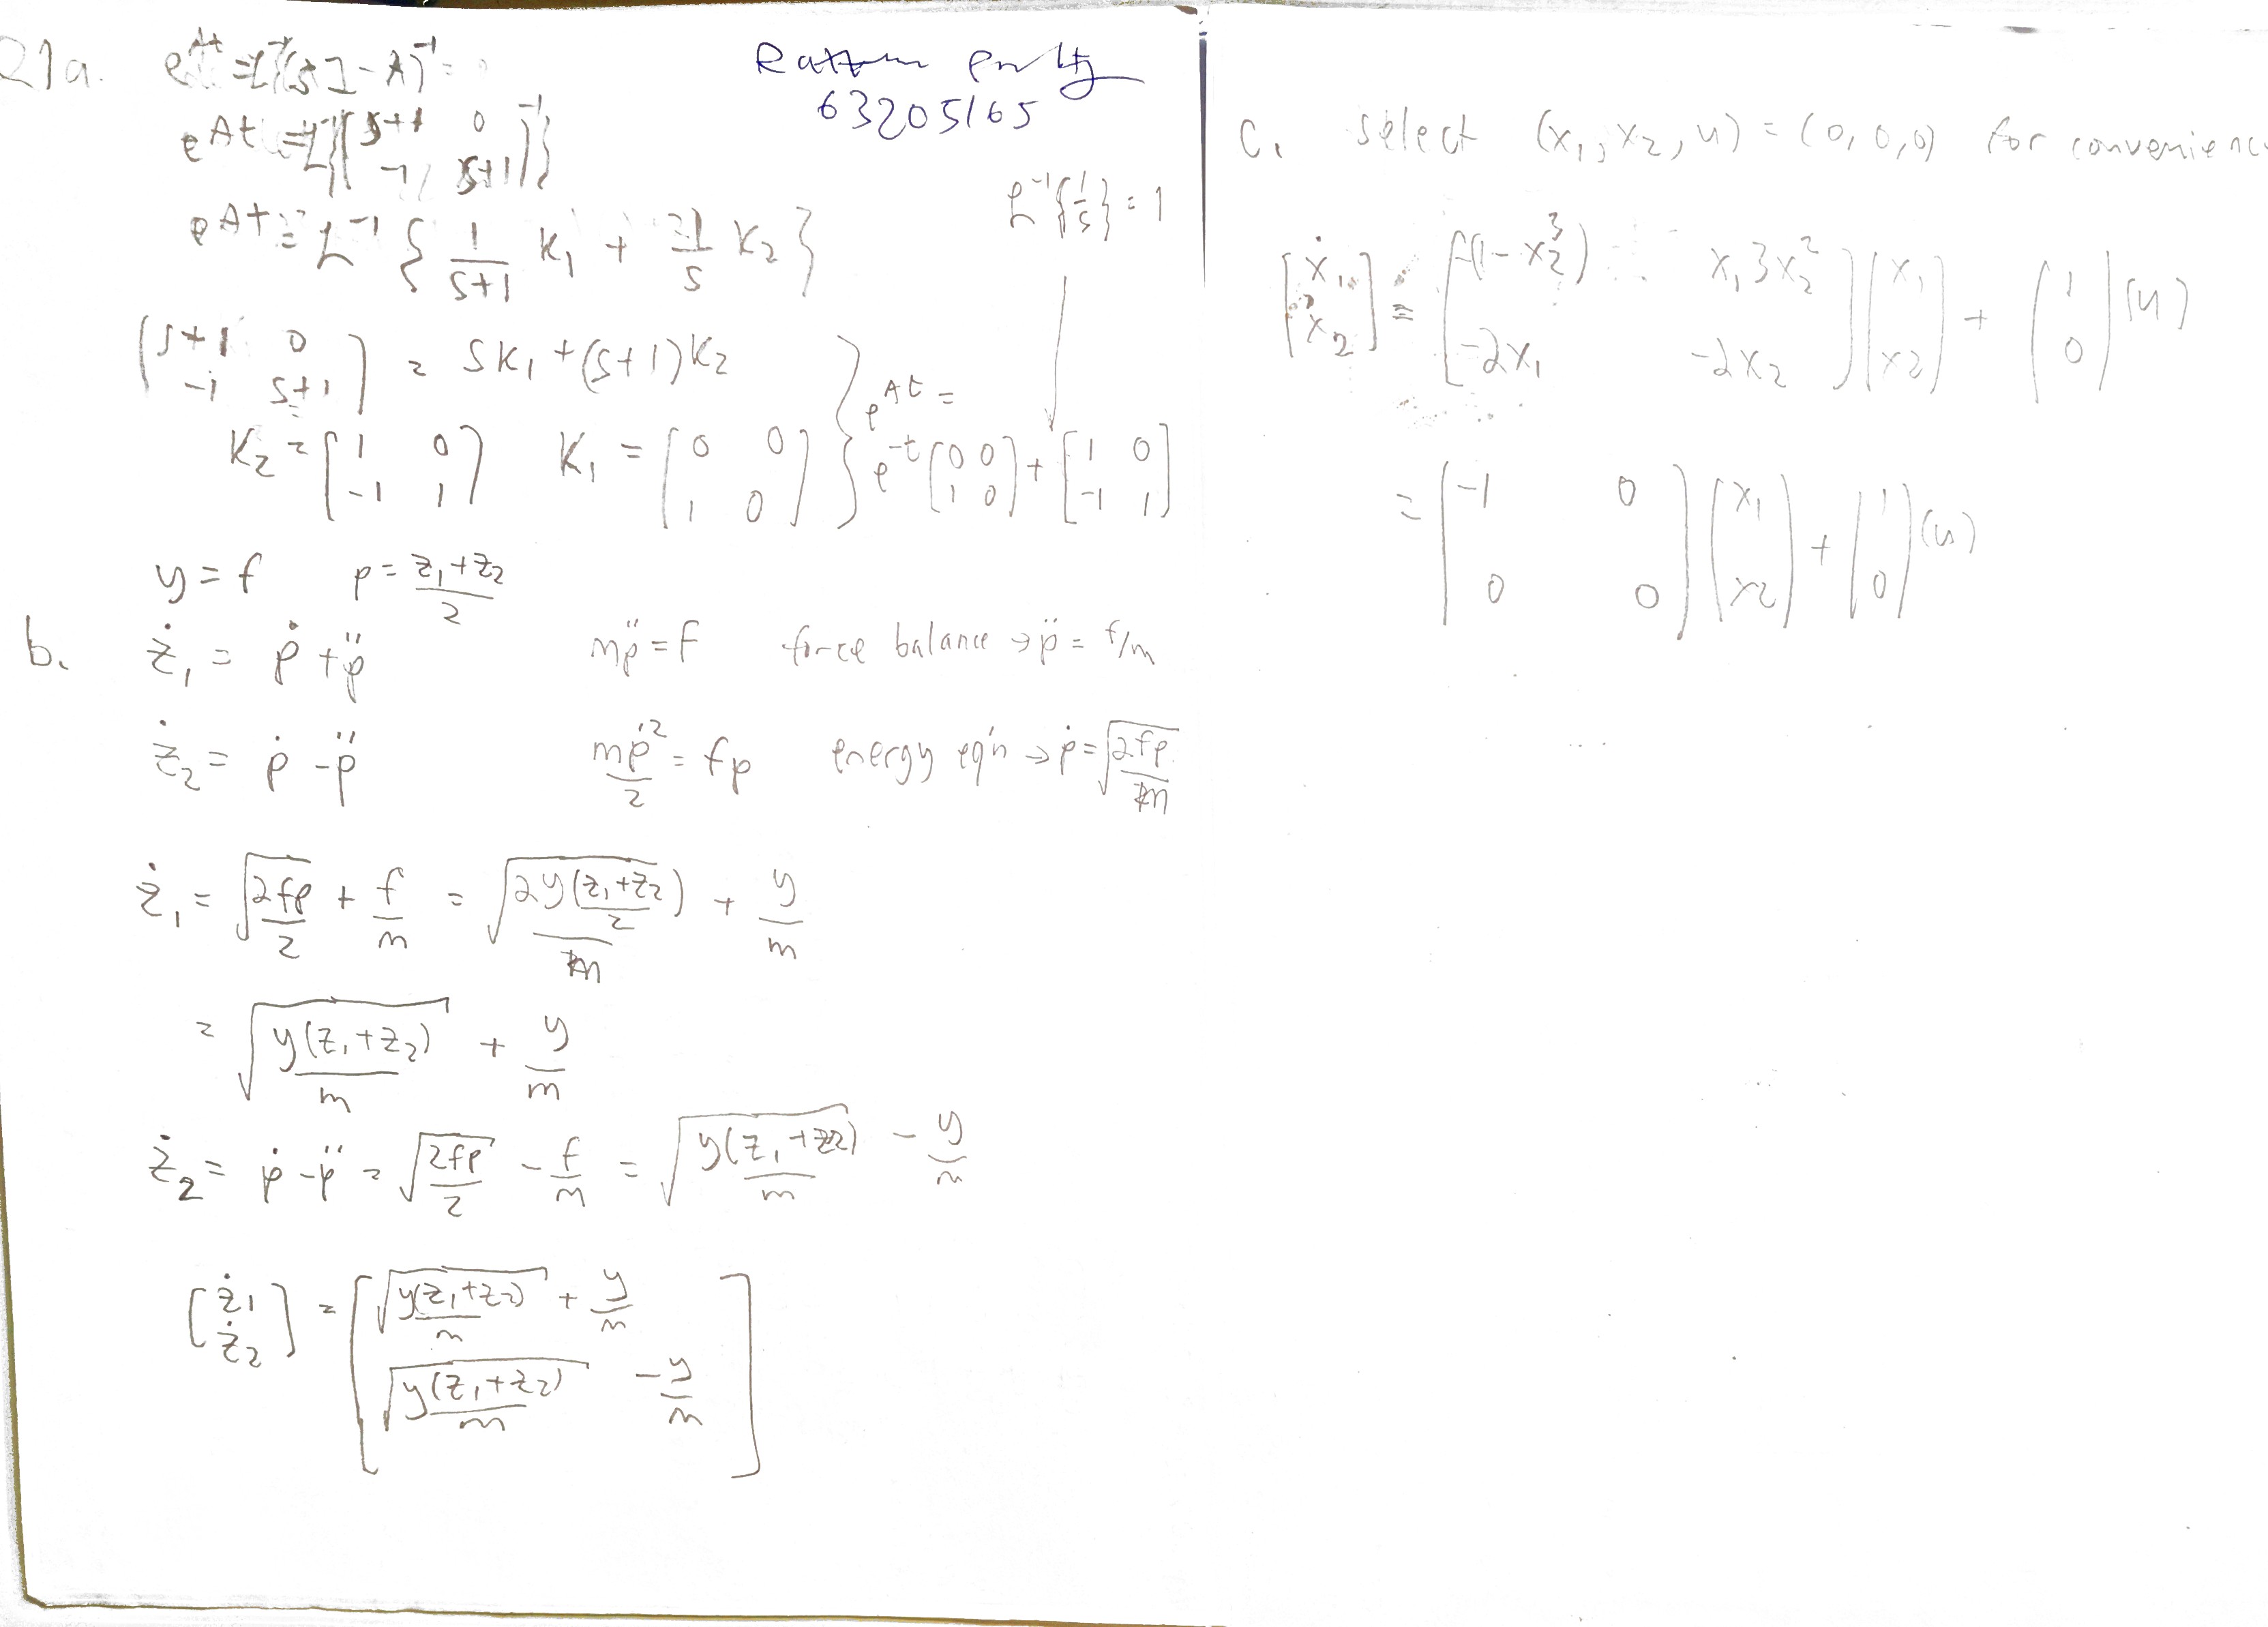 21a. e^{At} = L^{-1}(sI - A)^{-1} =
63205165
e^{At} = L^{-1}{(s+1 0 -1 s+1)^{-1}}
L^{-1}{1/s} = 1
e^{At} = L^{-1} { 1/(s+1) K₁ + 1/s K₂ }
(s+1 0 -1 s+1) = SK₁ + (s+1)K₂
K₂ = [1 0 -1 1] K₁ = [0 0 1 0] } e^{At} = e^{-t} [0 0 1 0] + [1 0 -1 1]
y = f p = (z₁+z₂)/2
b. ż₁ = ṗ + p̈ mp̈ = f force balance → p̈ = f/m
ż₂ = ṗ - p̈ mṗ²/2 = fp energy eq'n → ṗ = √(2fp/m)
ż₁ = √(2fp/2) + f/m = √(2y(z₁+z₂)/2 / m) + y/m
= √(y(z₁+z₂)/m) + y/m
ż₂ = ṗ - p̈ = √(2fp/2) - f/m = √(y(z₁+z₂)/m) - y/m
[ż₁ ż₂] = [√(y(z₁+z₂)/m) + y/m √(y(z₁+z₂)/m) - y/m]
c. select (x₁, x₂, u) = (0, 0, 0) for convenienc
[ẋ₁ ẋ₂] = [-(1-x₂³) x₁3x₂² -2x₁ -2x₂] [x₁ x₂] + [1 0] (u)
= [-1 0 0 0] [x₁ x₂] + [1 0] (u)